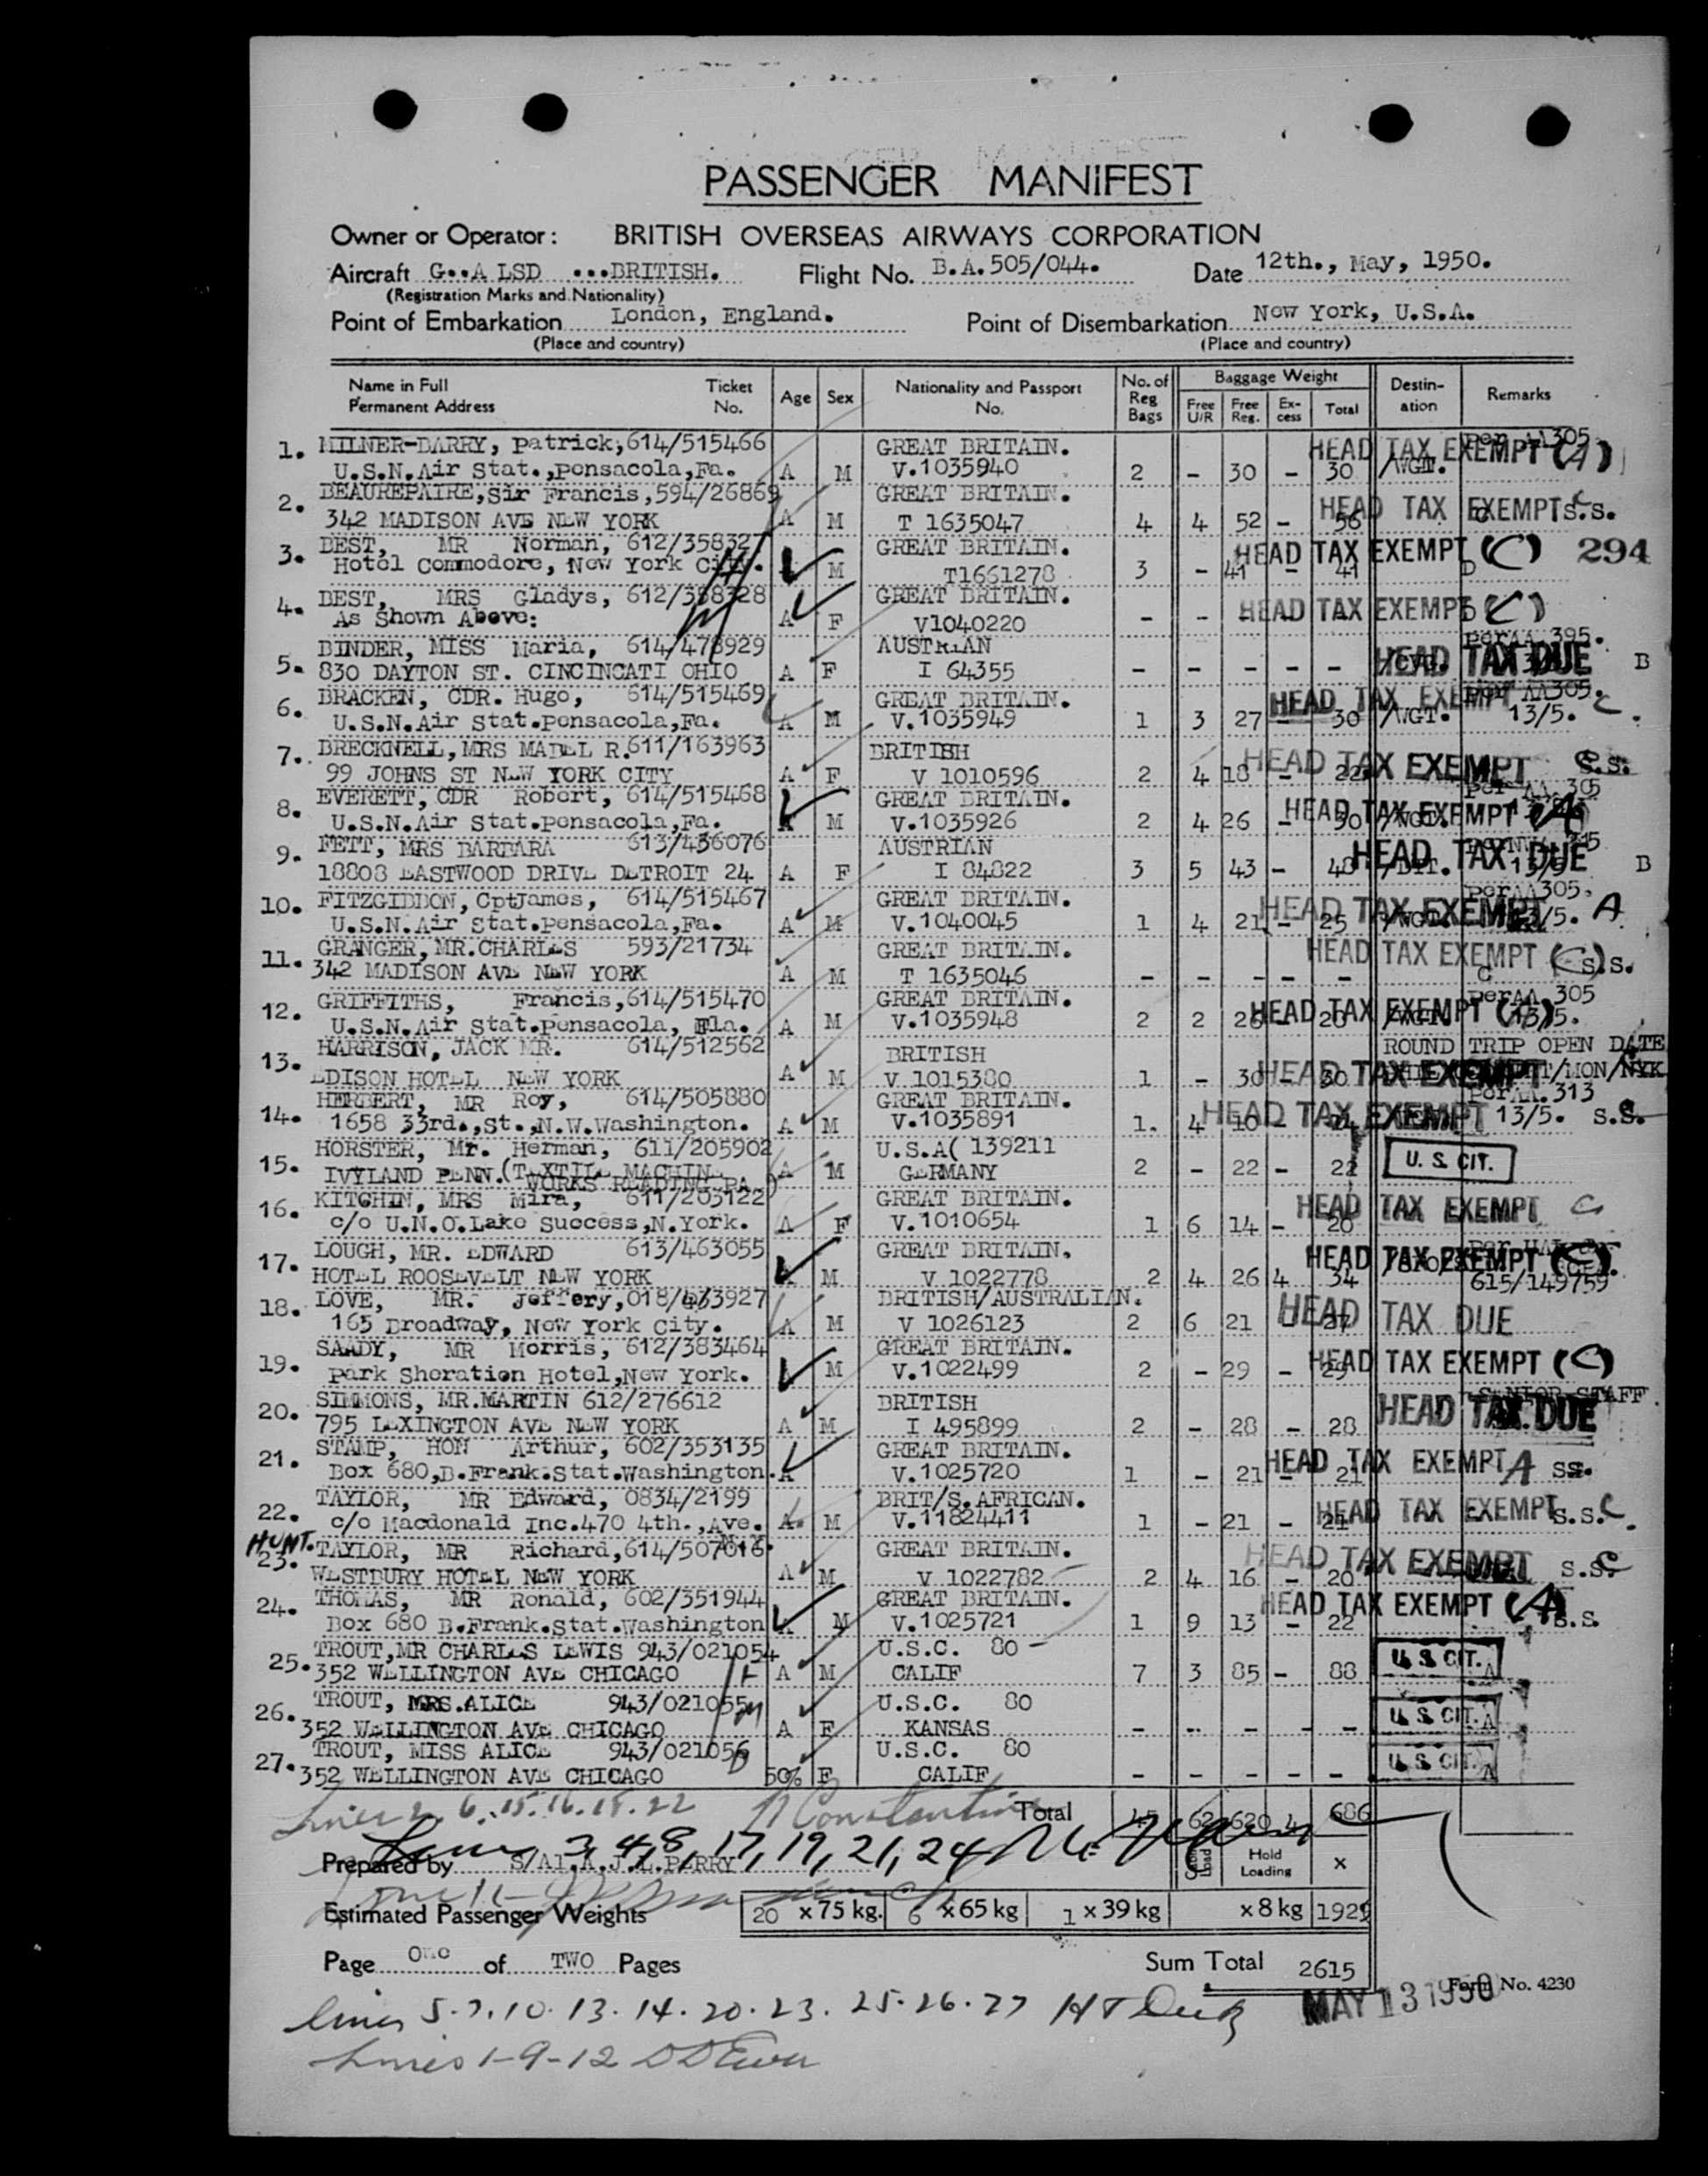 PASSENGER MANIFEST
Owner or Operator: BRITISH OVERSEAS AIRWAYS CORPORATION
Aircraft G..A LSD ...BRITISH. Flight No. B.A.505/044. Date 12th., May, 1950.
(Registration Marks and Nationality)
Point of Embarkation London, England. Point of Disembarkation New York, U.S.A.
(Place and country) (Place and country)
Name in Full Ticket Age Sex Nationality and Passport No. of Baggage Weight Destin- Remarks
Permanent Address No. No. Reg Bags Free U/R Free Reg. Ex-cess Total ation
1. MILNER-BARRY, Patrick, 614/515466 GREAT BRITAIN. HEAD TAX EXEMPT (A)
U.S.N.Air Stat.,Pensacola,Fa. A M V.1035940 2 - 30 - 30 /WGT.
2. BEAUREPAIRE, Sir Francis, 594/26869 GREAT BRITAIN. HEAD TAX EXEMPT
342 MADISON AVE NEW YORK A M T 1635047 4 4 52 - 56 S.S.
3. BEST, MR Norman, 612/358327 GREAT BRITAIN. HEAD TAX EXEMPT (C) 294
Hotel Commodore, New York City. M T1661278 3 - 41 - 41 D
4. BEST, MRS Gladys, 612/358328 GREAT BRITAIN. HEAD TAX EXEMPT (C)
As Shown Above: A F V1040220 - -
BINDER, MISS Maria, 614/478929 AUSTRIAN per AA 395.
5. 830 DAYTON ST. CINCINCATI OHIO A F I 64355 - - - - - HEAD TAX DUE B
6. BRACKEN, CDR. Hugo, 614/515469 GREAT BRITAIN. HEAD TAX EXEMPT per AA305.
U.S.N.Air Stat.Pensacola,Fa. A M V.1035949 1 3 27 - 30 /WGT. 13/5. C
7. BRECKNELL, MRS MABEL R. 611/163963 BRITISH
99 JOHNS ST NEW YORK CITY A F V 1010596 2 4 18 - 22 HEAD TAX EXEMPT S.S.
8. EVERETT, CDR Robert, 614/515468 GREAT BRITAIN. per AA 305
U.S.N.Air Stat.Pensacola,Fa. M V.1035926 2 4 26 - 30 HEAD TAX EXEMPT (A)
9. FETT, MRS BARBARA 613/436076 AUSTRIAN
18808 EASTWOOD DRIVE DETROIT 24 A F I 84822 3 5 43 - 48 HEAD TAX DUE 13/5 B
10. FITZGIBBON, CptJames, 614/515467 GREAT BRITAIN. per AA305.
U.S.N.Air Stat.Pensacola,Fa. A M V.1040045 1 4 21 - 25 HEAD TAX EXEMPT 13/5. A
11. GRANGER, MR.CHARLES 593/21734 GREAT BRITAIN. HEAD TAX EXEMPT (C)
342 MADISON AVE NEW YORK A M T 1635046 - - - - - C S.S.
12. GRIFFITHS, Francis, 614/515470 GREAT BRITAIN. per AA 305
U.S.N.Air Stat.Pensacola, Fla. A M V.1035948 2 2 26 - HEAD TAX EXEMPT (A) 13/5.
13. HARRISON, JACK MR. 614/512562 BRITISH ROUND TRIP OPEN DATE
EDISON HOTEL NEW YORK A M V 1015380 1 - 30 - 30 HEAD TAX EXEMPT /MON/NYK
14. HERBERT, MR Roy, 614/505880 GREAT BRITAIN. per AA.313
1658 33rd.,St.,N.W.Washington. A M V.1035891 1. 4 10 - 14 HEAD TAX EXEMPT 13/5. S.S.
15. HORSTER, Mr. Herman, 611/205902 U.S.A( 139211
IVYLAND PENN.(TEXTILE MACHINE WORKS READING PA ) A M GERMANY 2 - 22 - 22 U.S. CIT.
16. KITCHIN, MRS Mira, 611/205122 GREAT BRITAIN. HEAD TAX EXEMPT C
c/o U.N.O.Lake Success,N.York. A F V.1010654 1 6 14 - 20
17. LOUGH, MR. EDWARD 613/463055 GREAT BRITAIN. HEAD TAX EXEMPT (C).
HOTEL ROOSEVELT NEW YORK M V 1022778 2 4 26 4 34 615/149759
18. LOVE, MR. Jeffery, 018/463927 BRITISH/AUSTRALIAN.
165 Broadway, New York City. A M V 1026123 2 6 21 - 27 HEAD TAX DUE
19. SAADY, MR Morris, 612/383464 GREAT BRITAIN.
Park Sheration Hotel,New York. M V.1022499 2 - 29 - 29 HEAD TAX EXEMPT (C)
20. SIMMONS, MR.MARTIN 612/276612 BRITISH SENIOR STAFF
795 LEXINGTON AVE NEW YORK A M I 495899 2 - 28 - 28 HEAD TAX DUE
21. STAMP, HON Arthur, 602/353135 GREAT BRITAIN.
Box 680,B.Frank.Stat.Washington. A V.1025720 1 - 21 - 21 HEAD TAX EXEMPT A SS.
22. TAYLOR, MR Edward, 0834/2199 BRIT/S.AFRICAN.
c/o Macdonald Inc.470 4th.,Ave. A. M V.11824411 1 - 21 - 21 HEAD TAX EXEMPT S.S. C.
HUNT. 23. TAYLOR, MR Richard, 614/507016 GREAT BRITAIN.
WESTBURY HOTEL NEW YORK A M V 1022782 2 4 16 - 20 HEAD TAX EXEMPT S.S. C
24. THOMAS, MR Ronald, 602/351944 GREAT BRITAIN. HEAD TAX EXEMPT (A)
Box 680 B.Frank.Stat.Washington M V.1025721 1 9 13 - 22 S.S.
25. TROUT, MR CHARLES LEWIS 943/021054 U.S.C. 80 U.S. CIT.
352 WELLINGTON AVE CHICAGO H A M CALIF 7 3 85 - 88 A
26. TROUT, MRS.ALICE 943/021055 U.S.C. 80 U.S. CIT.
352 WELLINGTON AVE CHICAGO A F KANSAS - - - - - A
27. TROUT, MISS ALICE 943/021056 U.S.C. 80 U.S. CIT.
352 WELLINGTON AVE CHICAGO 50% F CALIF - - - - - A
Lines 2, 6, 15. 16. 18. 22 Constantine Total 45 62 620 4 686
Lines 3, 4, 8, 17, 19, 21, 24
Prepared by S/A1.A.J.L.PERRY Hold Loading x
Estimated Passenger Weights 20 x 75 kg. 6 x 65 kg 1 x 39 kg x 8 kg 1929
Page One of TWO Pages Sum Total 2615
Form No. 4230
MAY 13 1950
lines 5-7.10.13.14.20.23.25.26.27
Lines 1-9-12